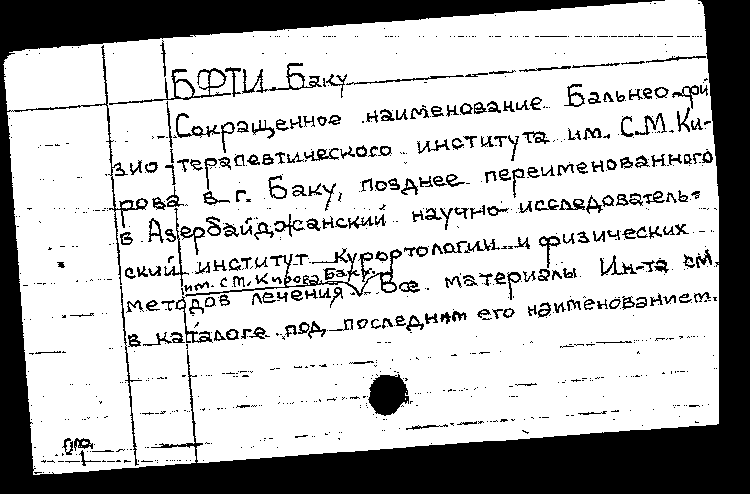 БФТИ. Баку
Сокращенное наименование Бальнео-фи
зио-терапевтического института им. С.М.Ки-
рова в г. Баку, позднее переименованного
в Азербайджанский научно-исследователь-
ский институт курортологии и физических
им. С.М.Кирова Баку.
методов лечения. Все материалы Ин-та см.
в каталоге под последним его наименованием.